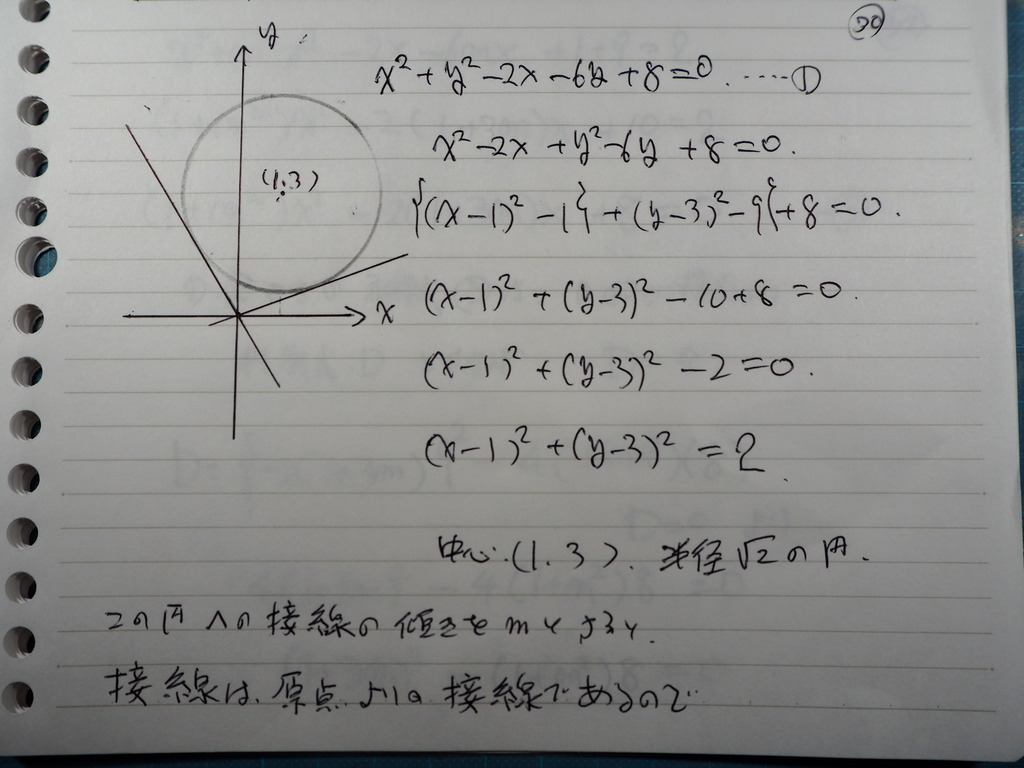 30
y
x² + y² - 2x - 6y + 8 = 0 ‥‥‥①
x² - 2x + y² - 6y + 8 = 0.
(1.3)
{(x-1)² - 1} + (y-3)² - 9} + 8 = 0.
x
(x-1)² + (y-3)² - 10 + 8 = 0.
(x-1)² + (y-3)² - 2 = 0.
(x-1)² + (y-3)² = 2
中心:(1.3). 半径√2の円.
この円への接線の傾きをmとすると.
接線は、原点よりの接線であるので